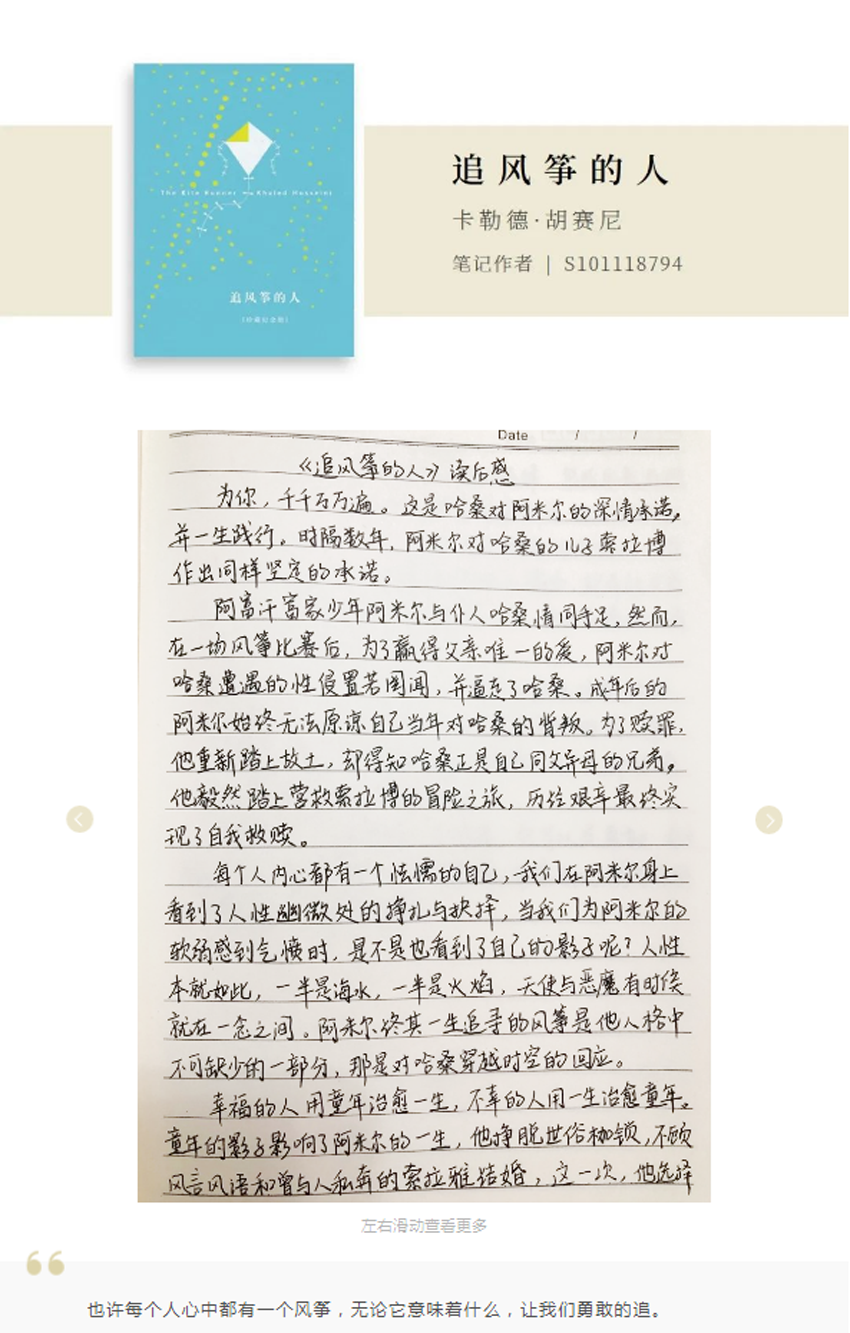 追风筝的人
卡勒德·胡赛尼
笔记作者 | S101118794
The Kite Runner Khaled Hosseini
追风筝的人
Date / /
《追风筝的人》读后感
为你，千千万万遍。这是哈桑对阿米尔的深情承诺，
并一生践行。时隔数年，阿米尔对哈桑的儿子索拉博
作出同样坚定的承诺。
阿富汗富家少年阿米尔与仆人哈桑情同手足，然而，
在一场风筝比赛后，为了赢得父亲唯一的爱，阿米尔对
哈桑遭遇的性侵置若罔闻，并逼走了哈桑。成年后的
阿米尔始终无法原谅自己当年对哈桑的背叛。为了赎罪，
他重新踏上故土，却得知哈桑正是自己同父异母的兄弟。
他毅然踏上营救索拉博的冒险之旅，历经艰辛最终实
现了自我救赎。
每个人内心都有一个怯懦的自己，我们在阿米尔身上
看到了人性幽微处的挣扎与抉择，当我们为阿米尔的
软弱感到气愤时，是不是也看到了自己的影子呢？人性
本就如此，一半是海水，一半是火焰，天使与恶魔有时候
就在一念之间。阿米尔终其一生追寻的风筝是他人格中
不可缺少的一部分，那是对哈桑穿越时空的回应。
幸福的人用童年治愈一生，不幸的人用一生治愈童年。
童年的影子影响了阿米尔的一生，他挣脱世俗枷锁，不顾
风言风语和曾与人私奔的索拉雅结婚，这一次，他选择
左右滑动查看更多
也许每个人心中都有一个风筝，无论它意味着什么，让我们勇敢的追。